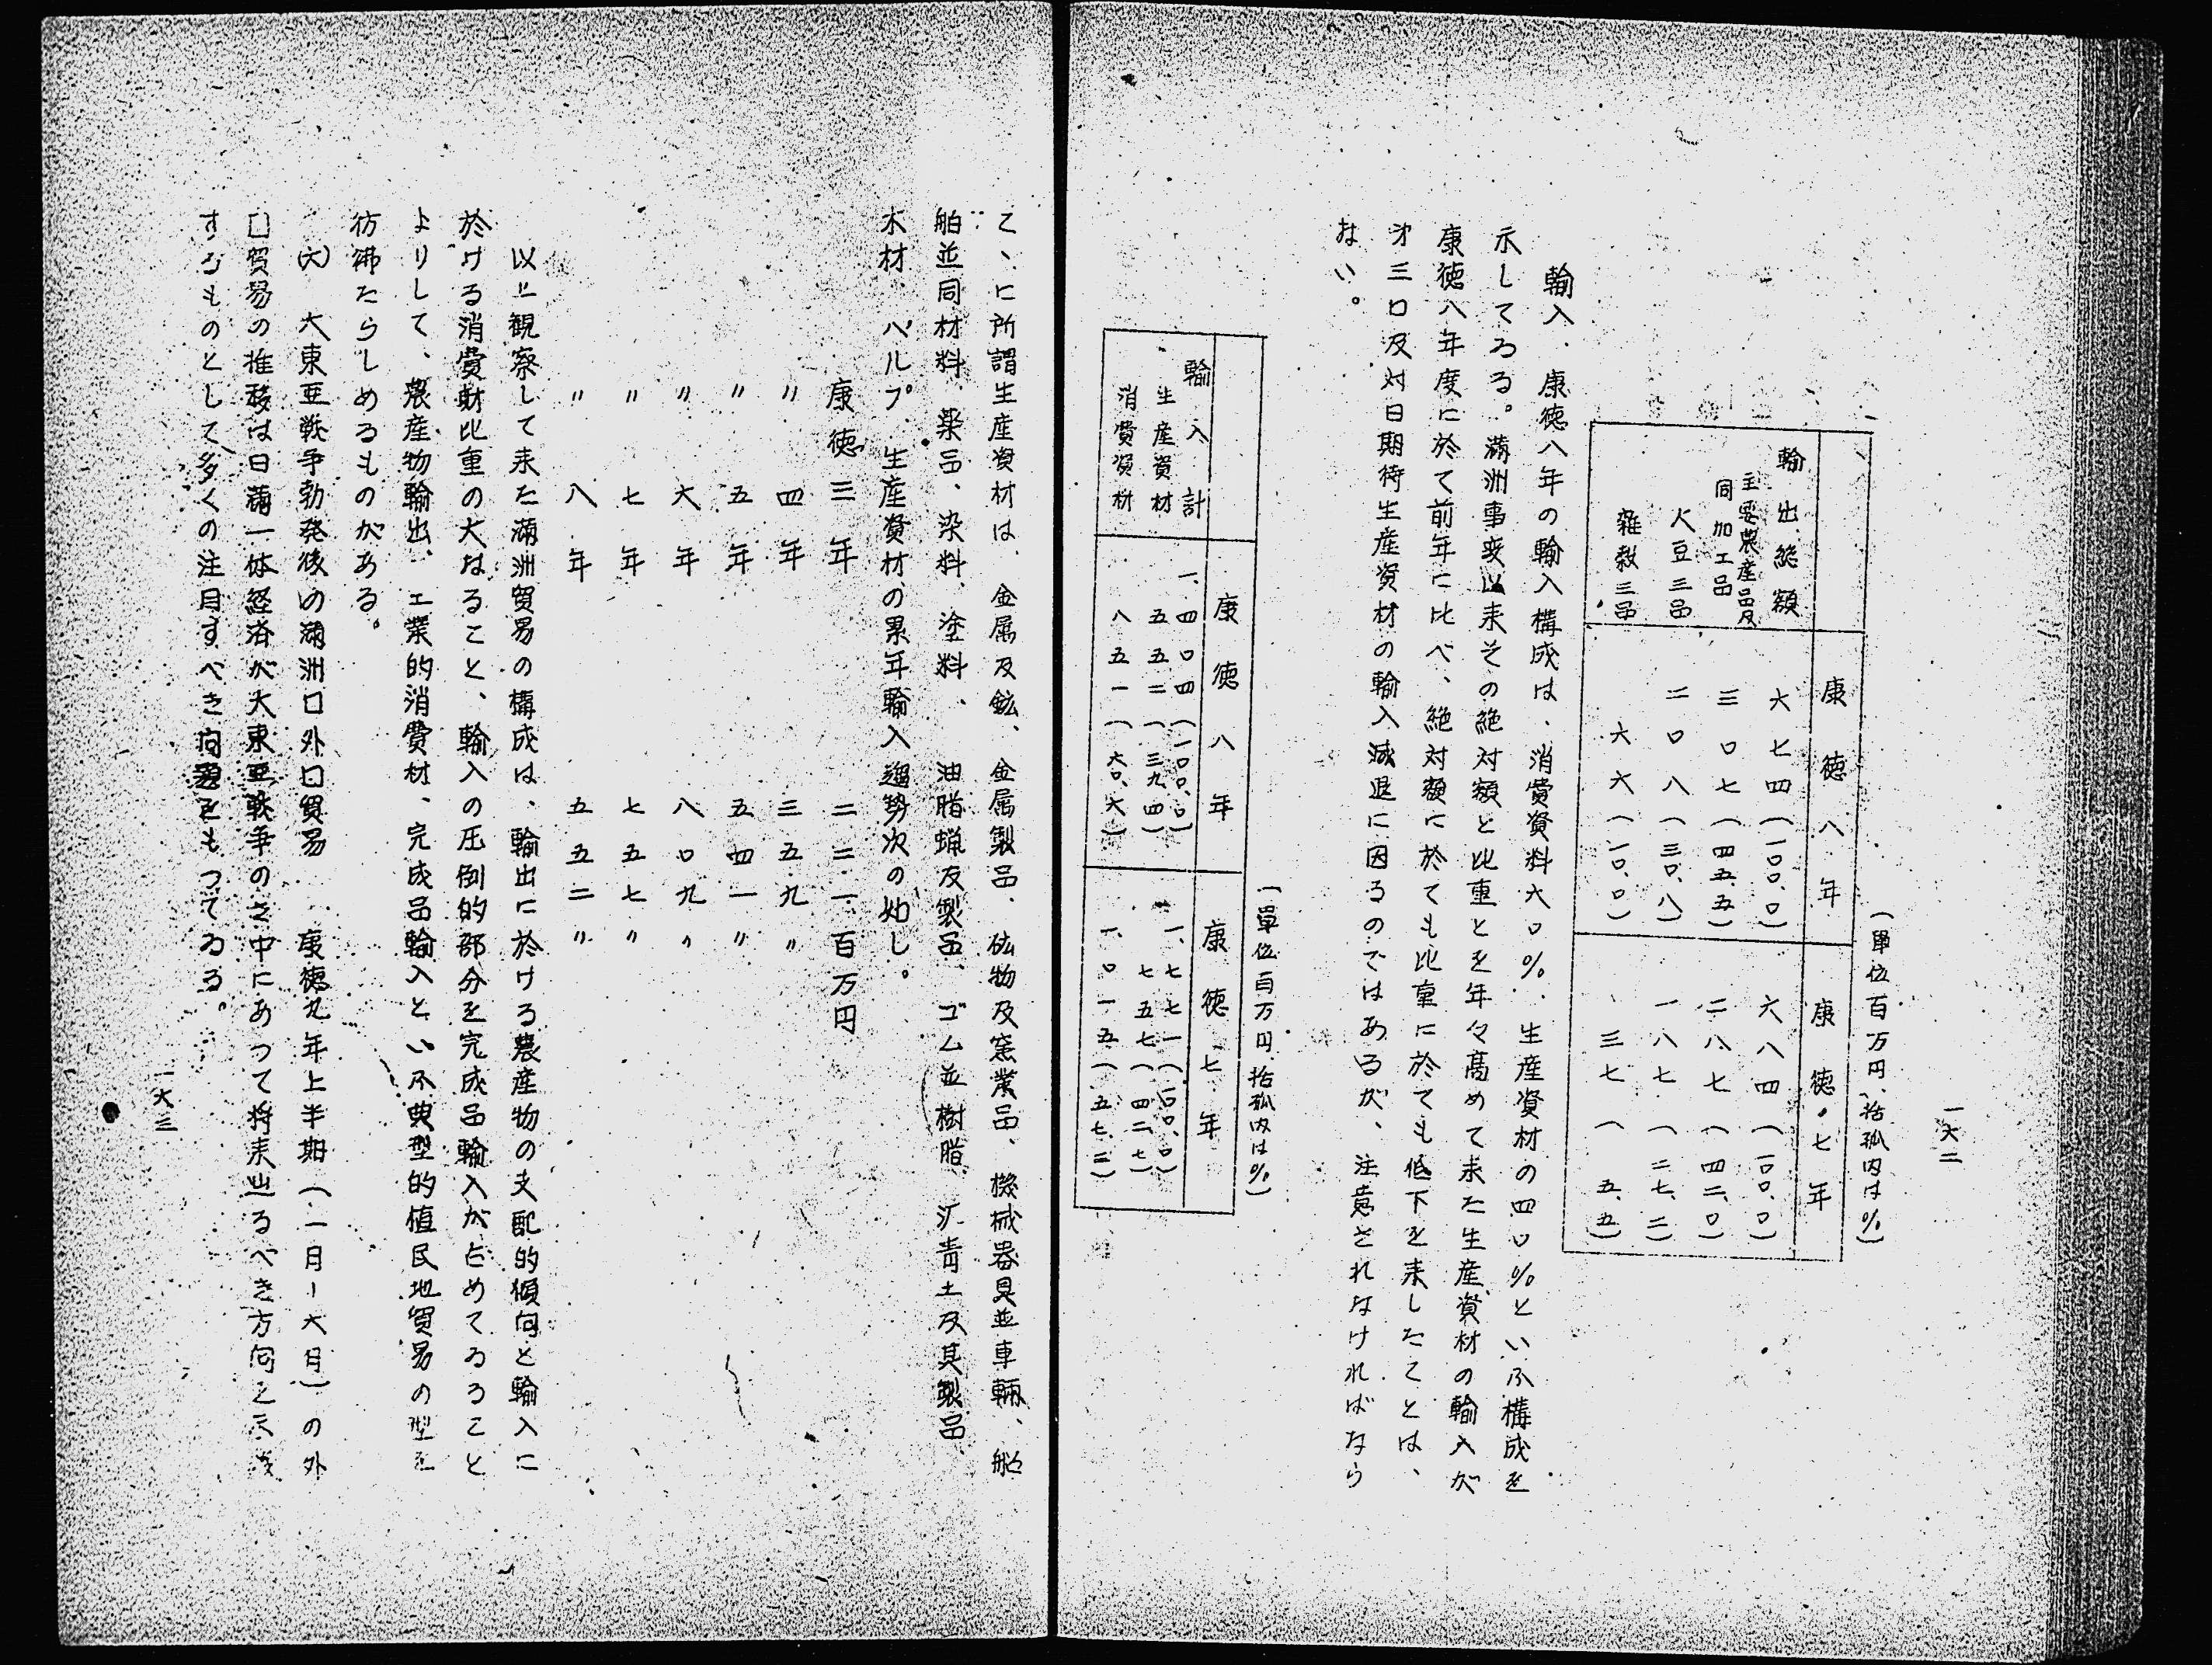 一六二
（單位百万円、括弧内は％）
康徳八年　康徳七年
輸出総額　六七四（一〇〇.〇）　六八四（一〇〇.〇）
主要農産品及同加工品　三〇七（四五.五）　二八七（四二.〇）
大豆三品　二〇八（三〇.八）　一八七（二七.二）
雑穀三品　六六（一〇.〇）　三七（五.五）
輸入、康徳八年の輸入構成は、消費資料六〇％、生産資材の四〇％といふ構成を
示してゐる。満洲事変以来その絶対額と比重とを年々高めて来た生産資材の輸入が
康徳八年度に於て前年に比べ、絶対額に於ても比重に於ても低下を来したことは、
才三囗及対日期待生産資材の輸入減退に因るのではあるが、注意されなければなら
ない。
（單位百万円括弧内は％）
康徳八年　康徳七年
輸入計　一、四〇四（一〇〇.〇）　一、七七一（一〇〇.〇）
生産資材　五五二（三九.四）　七五七（四二.七）
消費資材　八五一（六〇.六）　一、〇一五（五七.三）
こゝに所謂生産資材は、金属及鉱、金属製品、砿物及窯業品、機械器具並車輛、船
舶並同材料、薬品、染料、塗料、油脂蝋及製品、ゴム並樹脂、瀝青土及其製品、
木材、パルプ、生産資材の累年輸入趨勢次の如し。
康徳三年　二二一百万円
〃四年　三五九〃
〃五年　五四一〃
〃六年　八〇九〃
〃七年　七五七〃
〃八年　五五二〃
以上観察して来た満洲貿易の構成は、輸出に於ける農産物の支配的傾向と輸入に
於ける消費財比重の大なること、輸入の圧倒的部分を完成品輸入が占めてゐること
よりして、農産物輸出、工業的消費材、完成品輸入といふ典型的植民地貿易の型を
彷彿たらしめるものがある。
(六)　大東亜戦争勃発後の満洲囗外囗貿易　康徳九年上半期（一月－六月）の外
囗貿易の推移は日満一体経済が大東亜戦争のさ中にあつて将来出るべき方向を示唆
するものとして多くの注目すべき問題をもつてゐる。
一六三